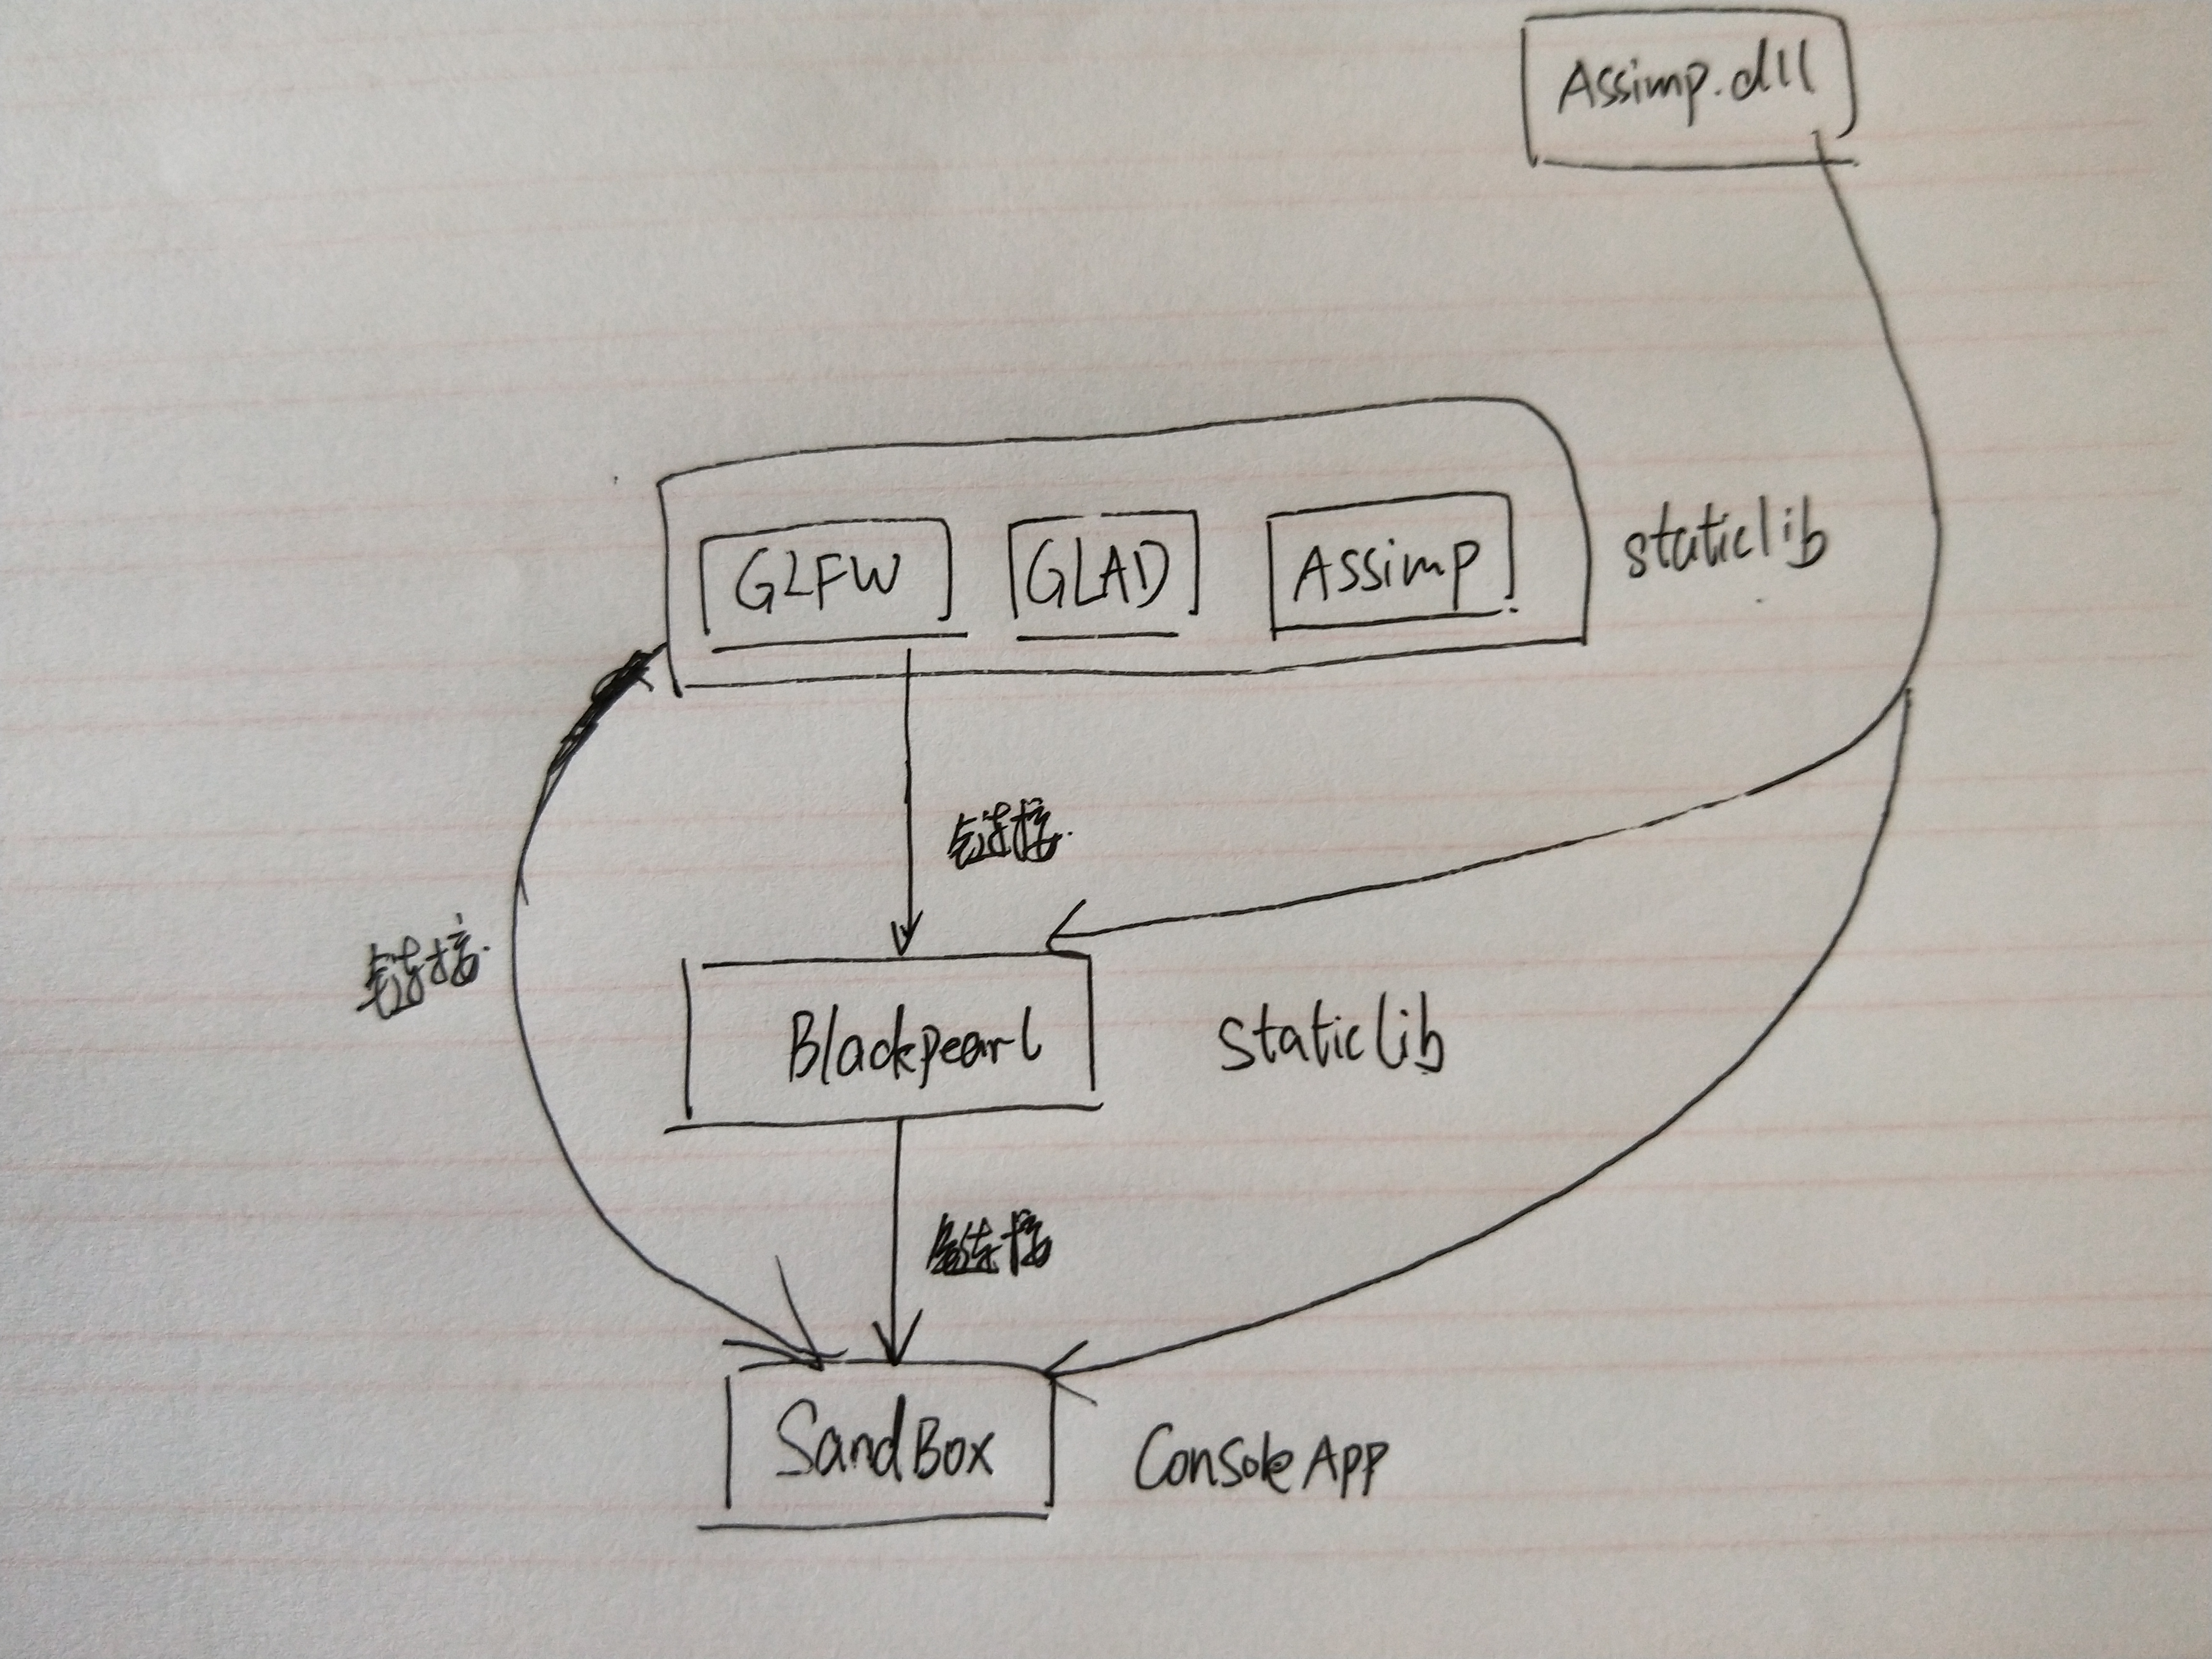 Assimp.dll
GLFW GLAD Assimp staticlib
链接
链接
Blackpearl staticlib
链接
SandBox ConsoleApp